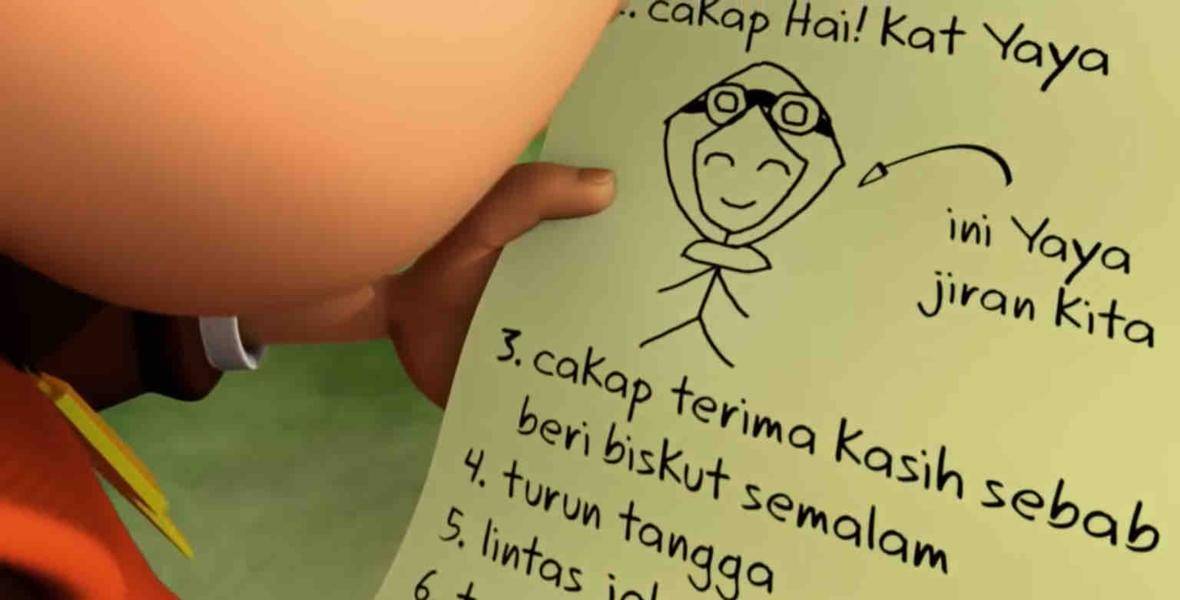 cakap Hai! Kat Yaya
ini Yaya
jiran Kita
3. cakap terima Kasih sebab
beri biskut semalam
4. turun tangga
5. lintas
6.